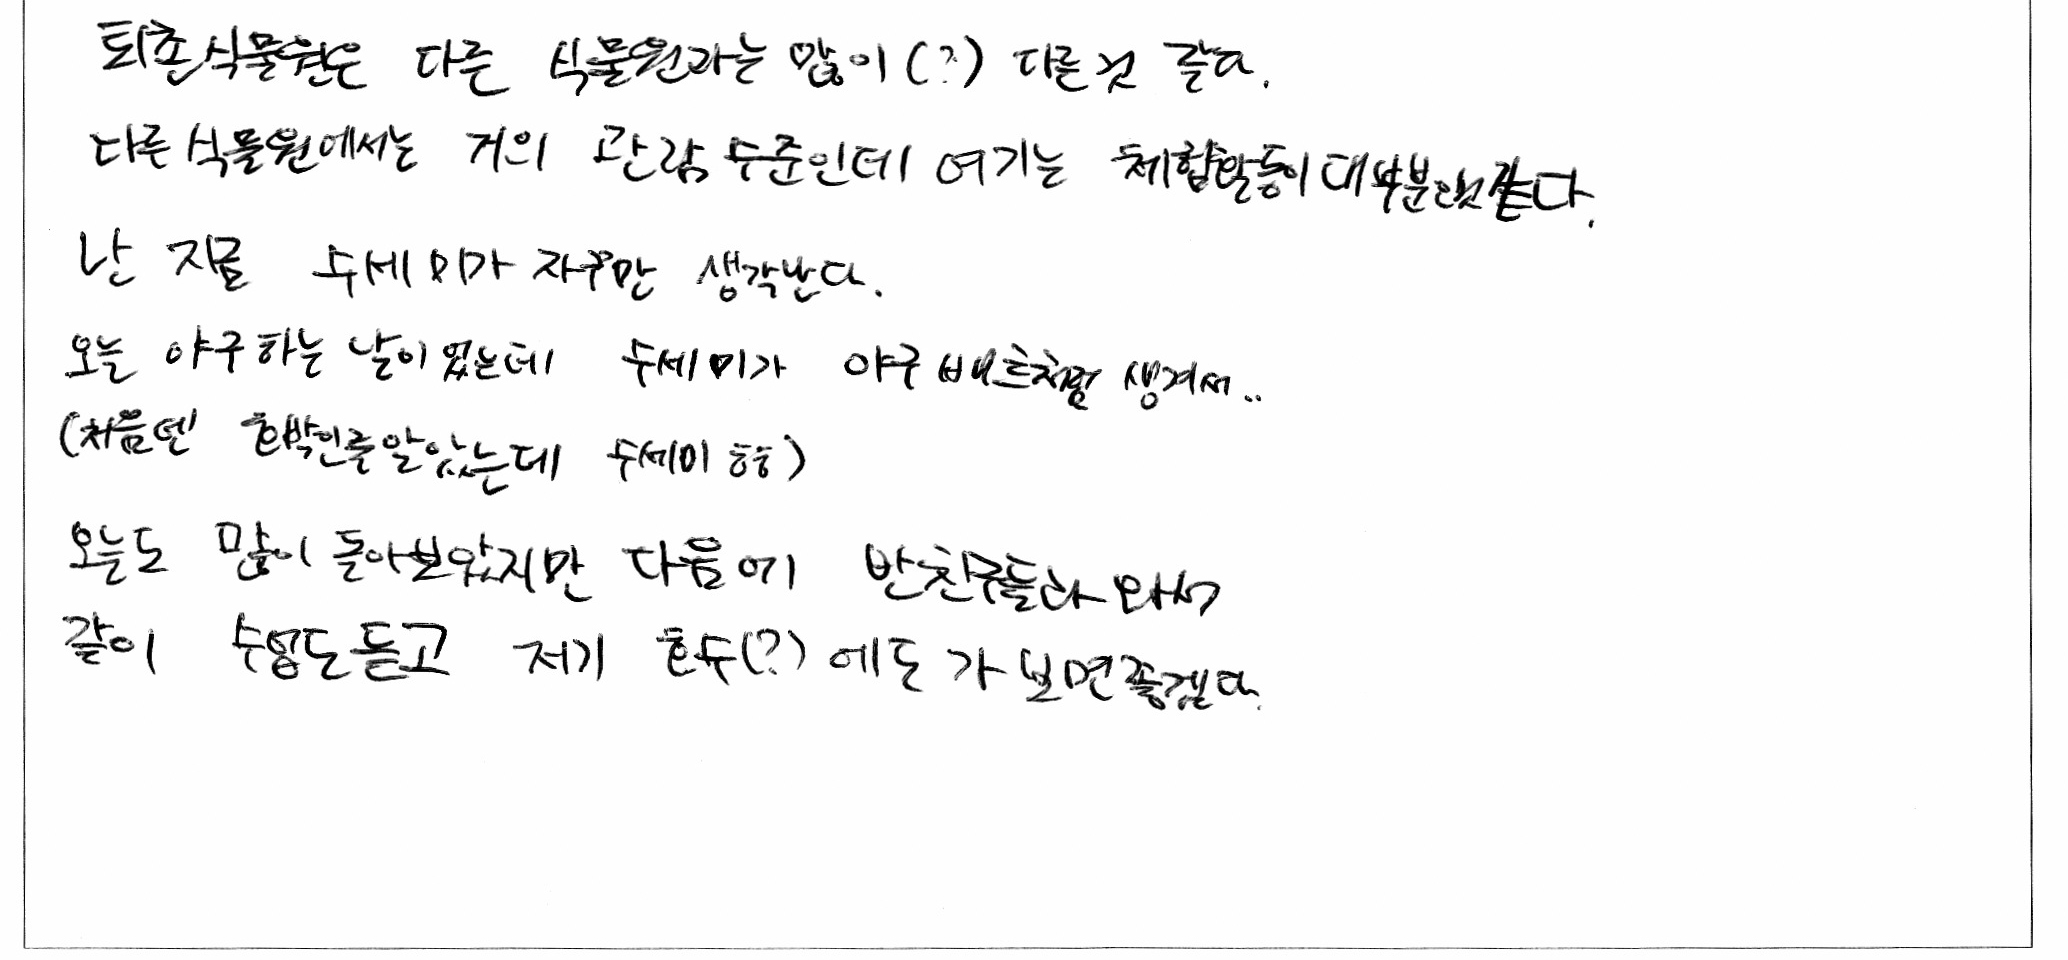 퇴촌식물원은 다른 식물원과는 많이(?) 다른것 같다.
다른 식물원에서는 거의 관람 수준인데 여기는 체험활동이 대부분인것 같다.
난 지금 수세미가 자꾸만 생각난다.
오늘 야구하는 날이었는데 수세미가 야구 배트처럼 생겨서..
(처음엔 호박인줄 알았는데 수세미 ㅎㅎ)
오늘도 많이 돌아보았지만 다음에 반친구들과 와서
같이 수업도 듣고 저기 호수(?)에도 가보면 좋겠다.